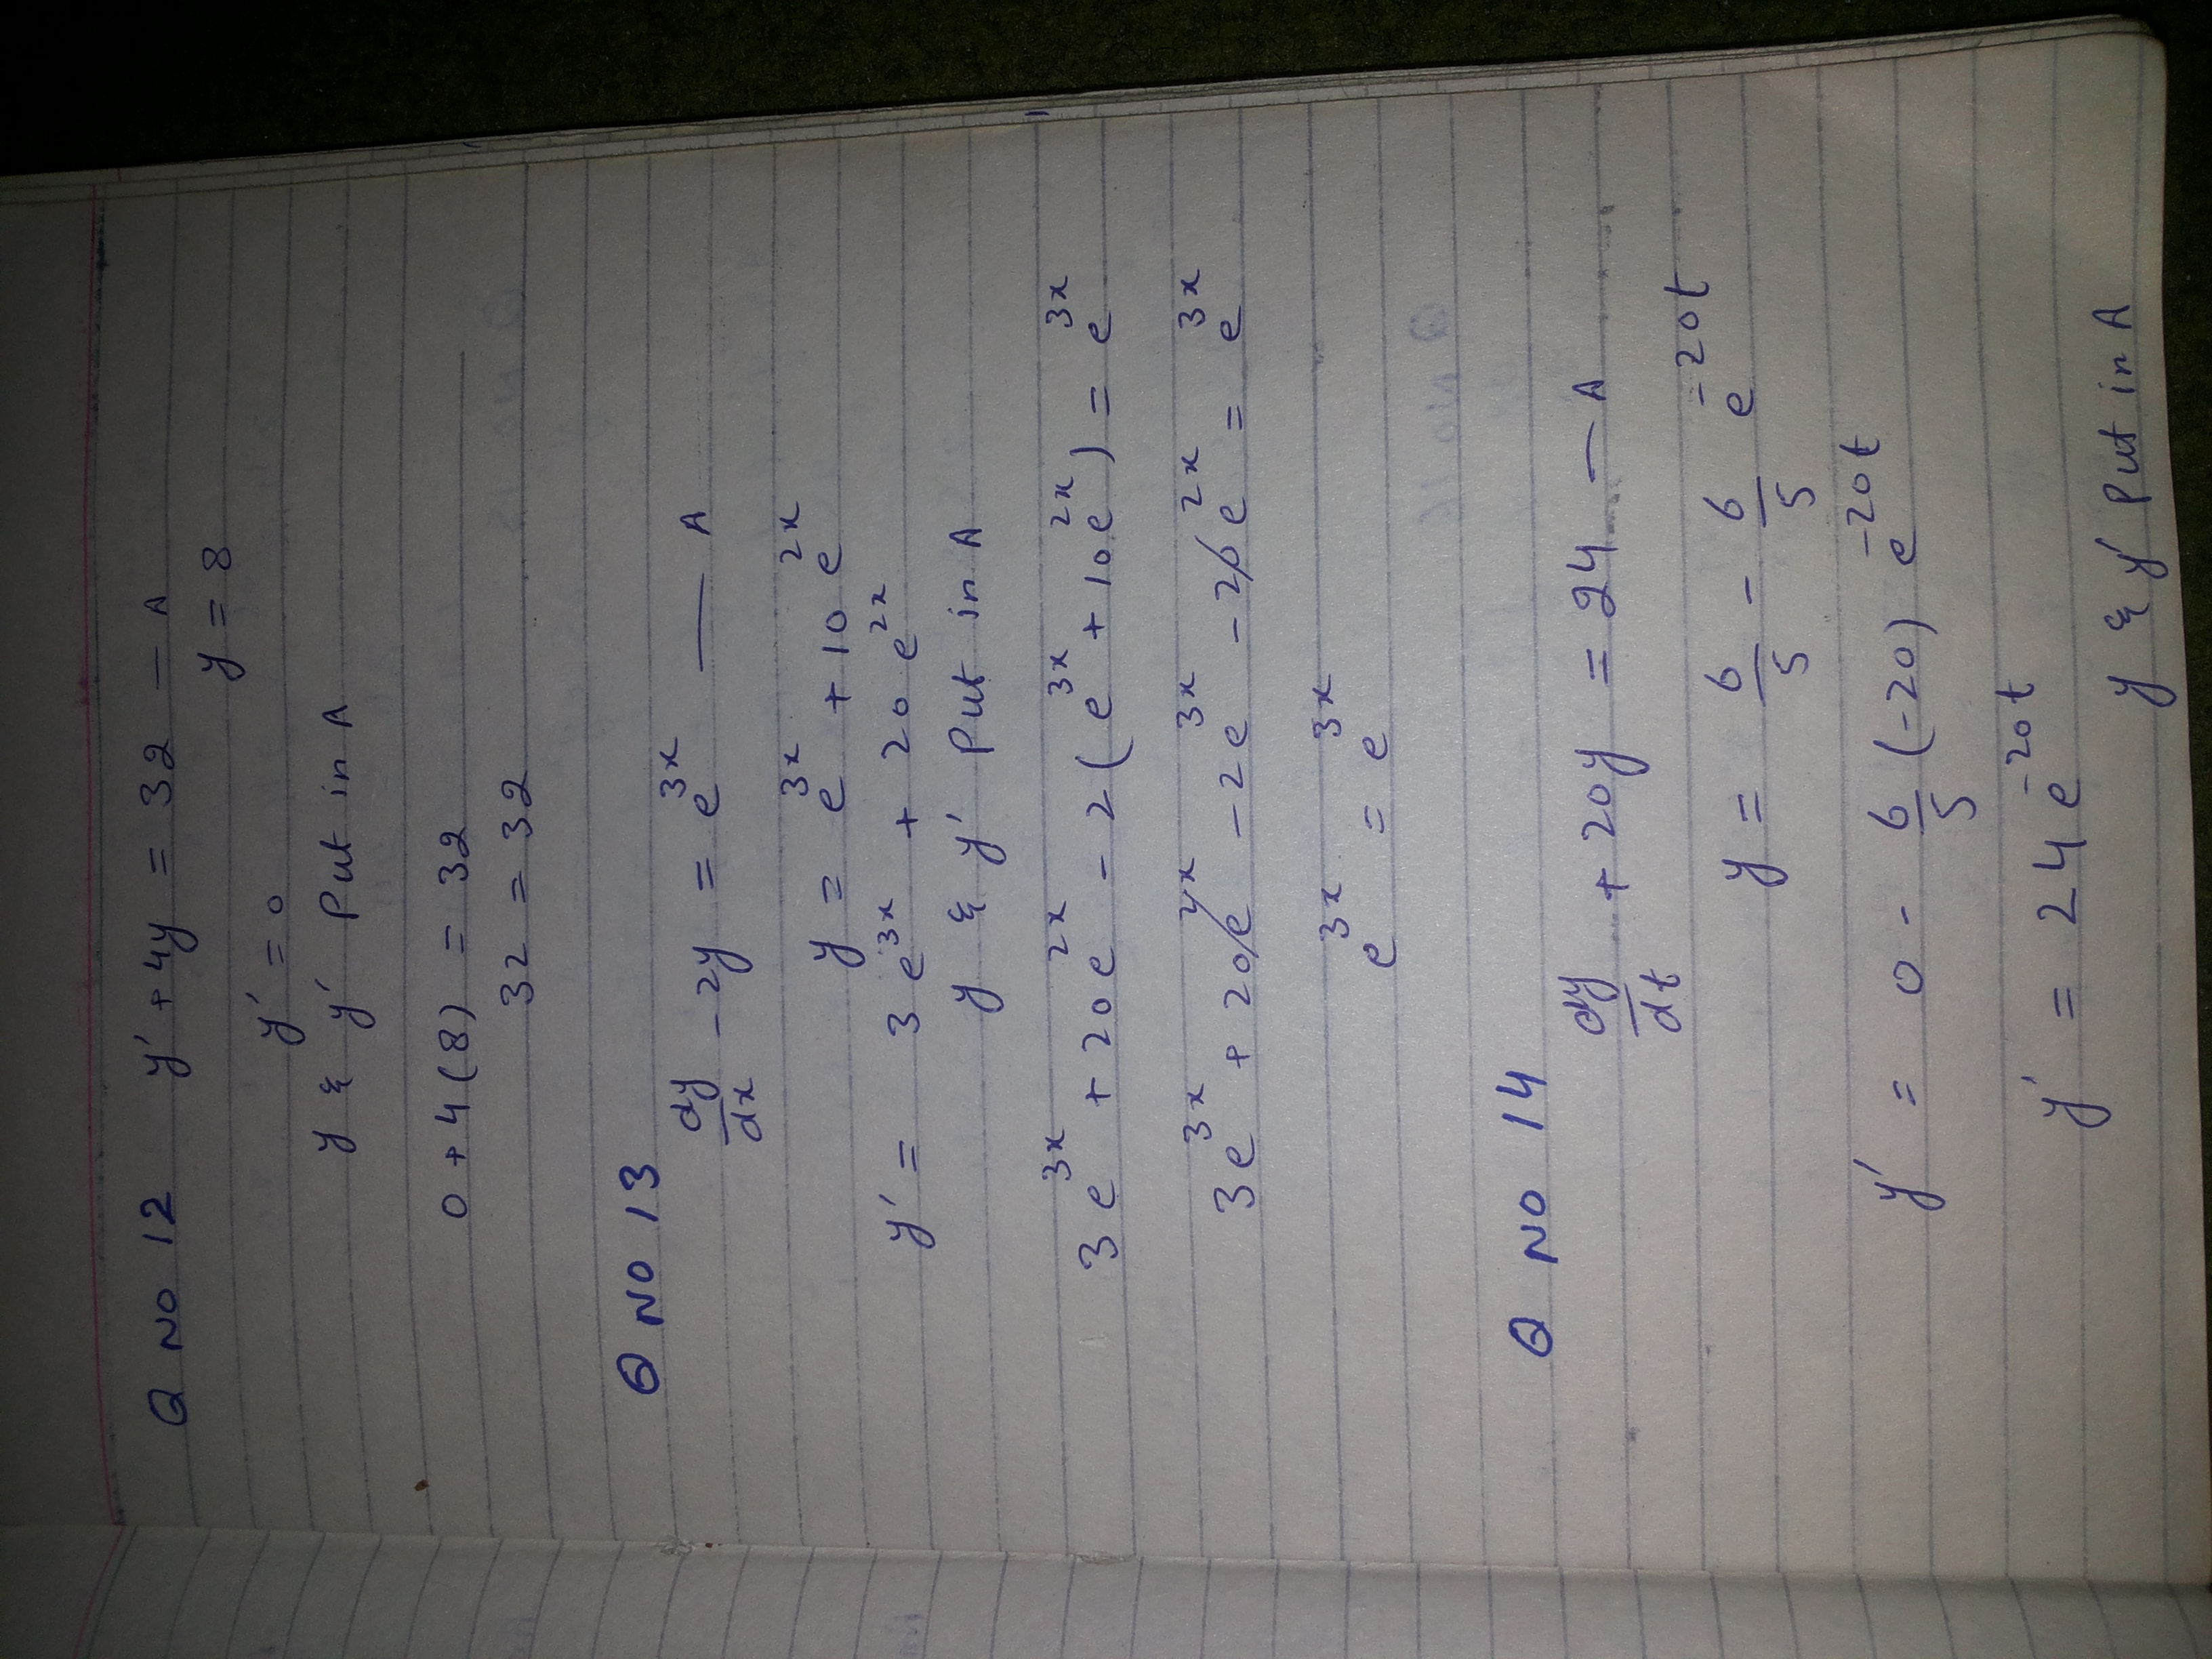 Q NO 12 y' + 4y = 32 — A
y = 8
y' = 0
y & y' Put in A
0 + 4(8) = 32
32 = 32
Q NO 13
dy/dx - 2y = e^3x — A
y = e^3x + 10 e^2x
y' = 3e^3x + 20 e^2x
y & y' Put in A
3e^3x + 20e^2x - 2(e^3x + 10e^2x) = e^3x
3e^3x + 20e^2x - 2e^3x - 20e^2x = e^3x
e^3x = e^3x
Q NO 14
dy/dt + 20y = 24 — A
y = 6/5 - 6/5 e^-20t
y' = 0 - 6/5 (-20) e^-20t
y' = 24 e^-20t
y & y' Put in A